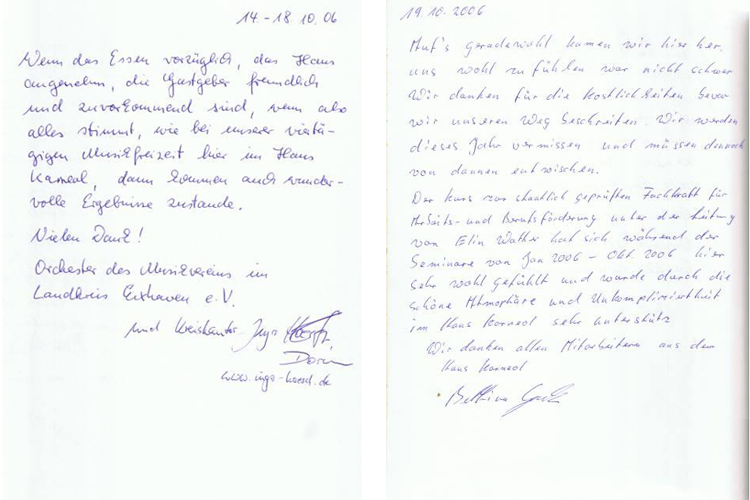 14.-18.10.06
Wenn das Essen vorzüglich, das Haus
angenehm, die Gastgeber freundlich
und zuvorkommend sind, wenn also
alles stimmt, wie bei unserer viertä-
gigen Musikfreizeit hier im Haus
Karneol, dann kommen auch wunder-
volle Ergebnisse zustande.
Vielen Dank!
Orchester des Musikvereins im
Landkreis Cuxhaven e.V.
und Kreiskantor Ingo
www.ingo-hoesch.de
19.10.2006
Auf's geradewohl kamen wir hier her,
uns wohl zu fühlen war nicht schwer
Wir danken für die Köstlichkeiten bevor
wir unseren Weg beschreiten. Wir werden
dieses Jahr vermissen und müssen dennoch
von dannen entwischen.
Der Kurs zur staatlich geprüften Fachkraft für
Arbeits- und Berufsförderung unter der Leitung
von Elin hat sich während der
Seminare von Jan 2006 - Okt 2006 hier
sehr wohl gefühlt und wurde durch die
schöne Atmosphäre und Unkompliziertheit
im Haus Korneol sehr unterstützt
Wir danken allen Mitarbeitern aus dem
Haus Korneol
Bettina